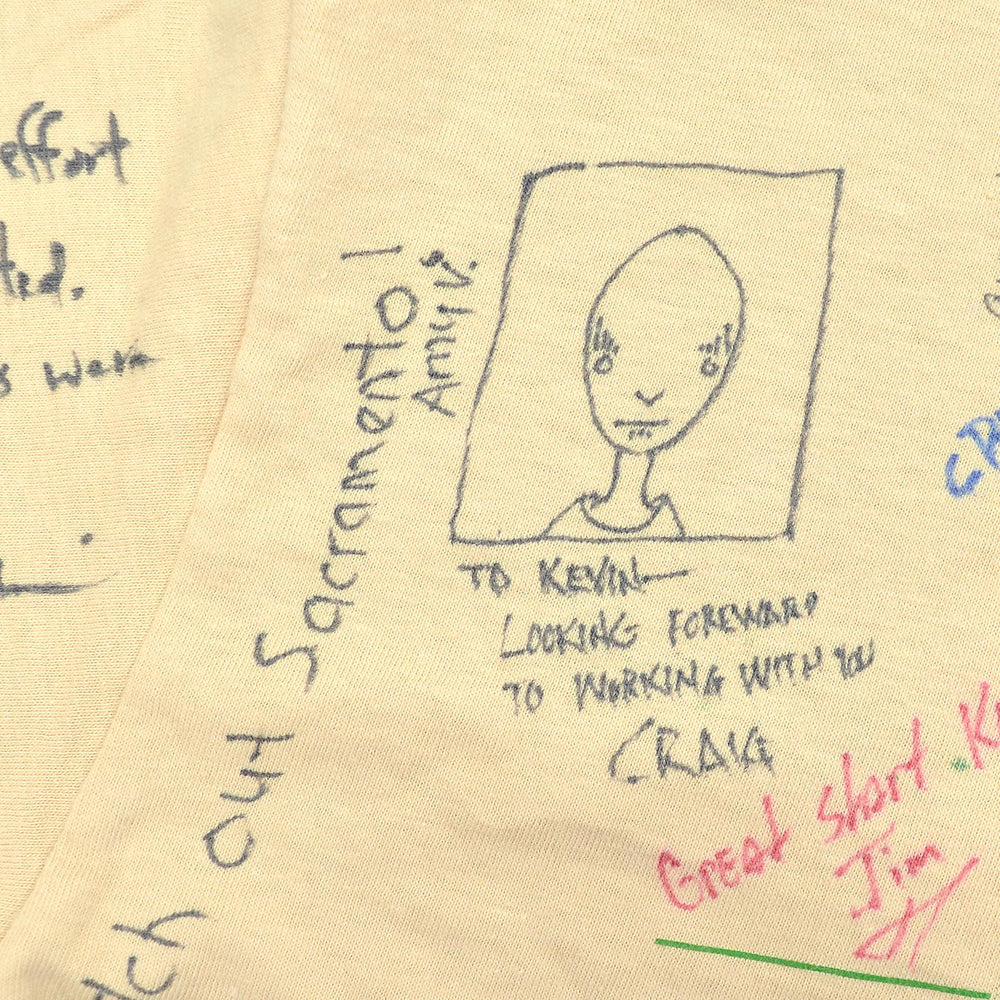 effort
were
out Sacramento!
Amy V.
TO KEVIN—
LOOKING FOREWARD
TO WORKING WITH YOU
CRAIG
Great Short
Jim